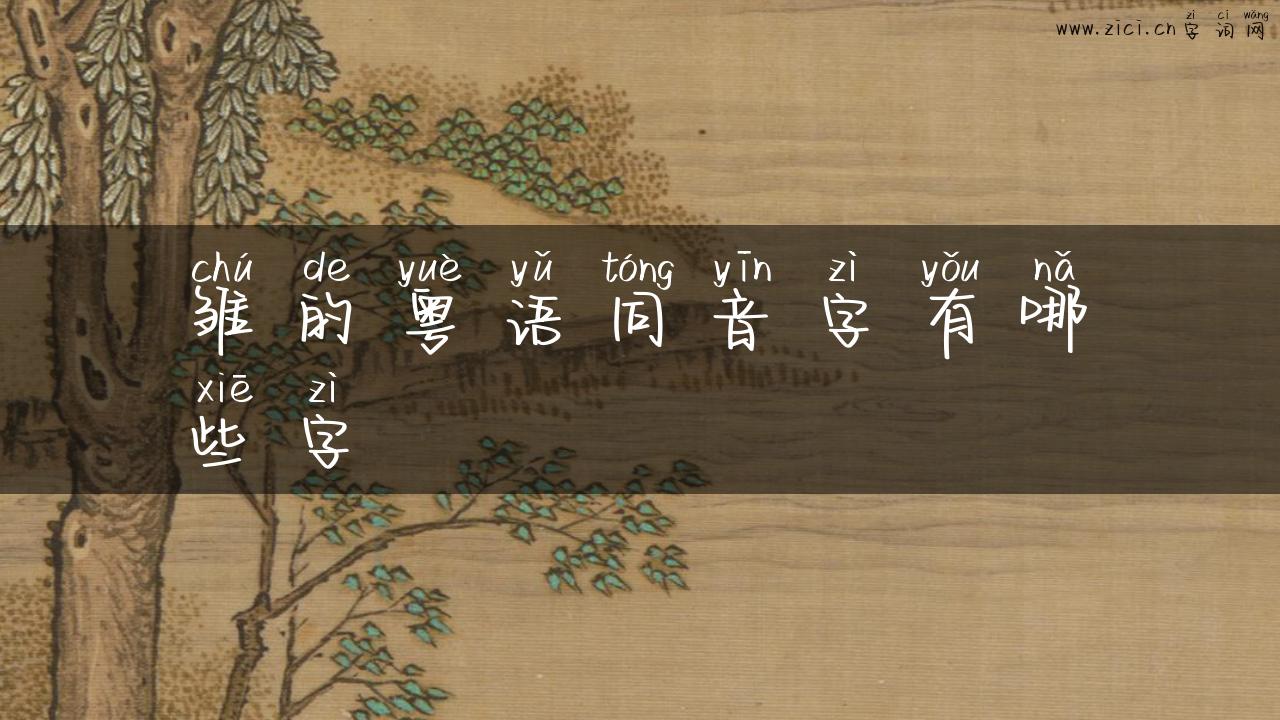 zì cí wǎng
www.zici.cn 字词网
chú de yuè yǔ tóng yīn zì yǒu nǎ
雏的粤语同音字有哪
xiē zì
些字